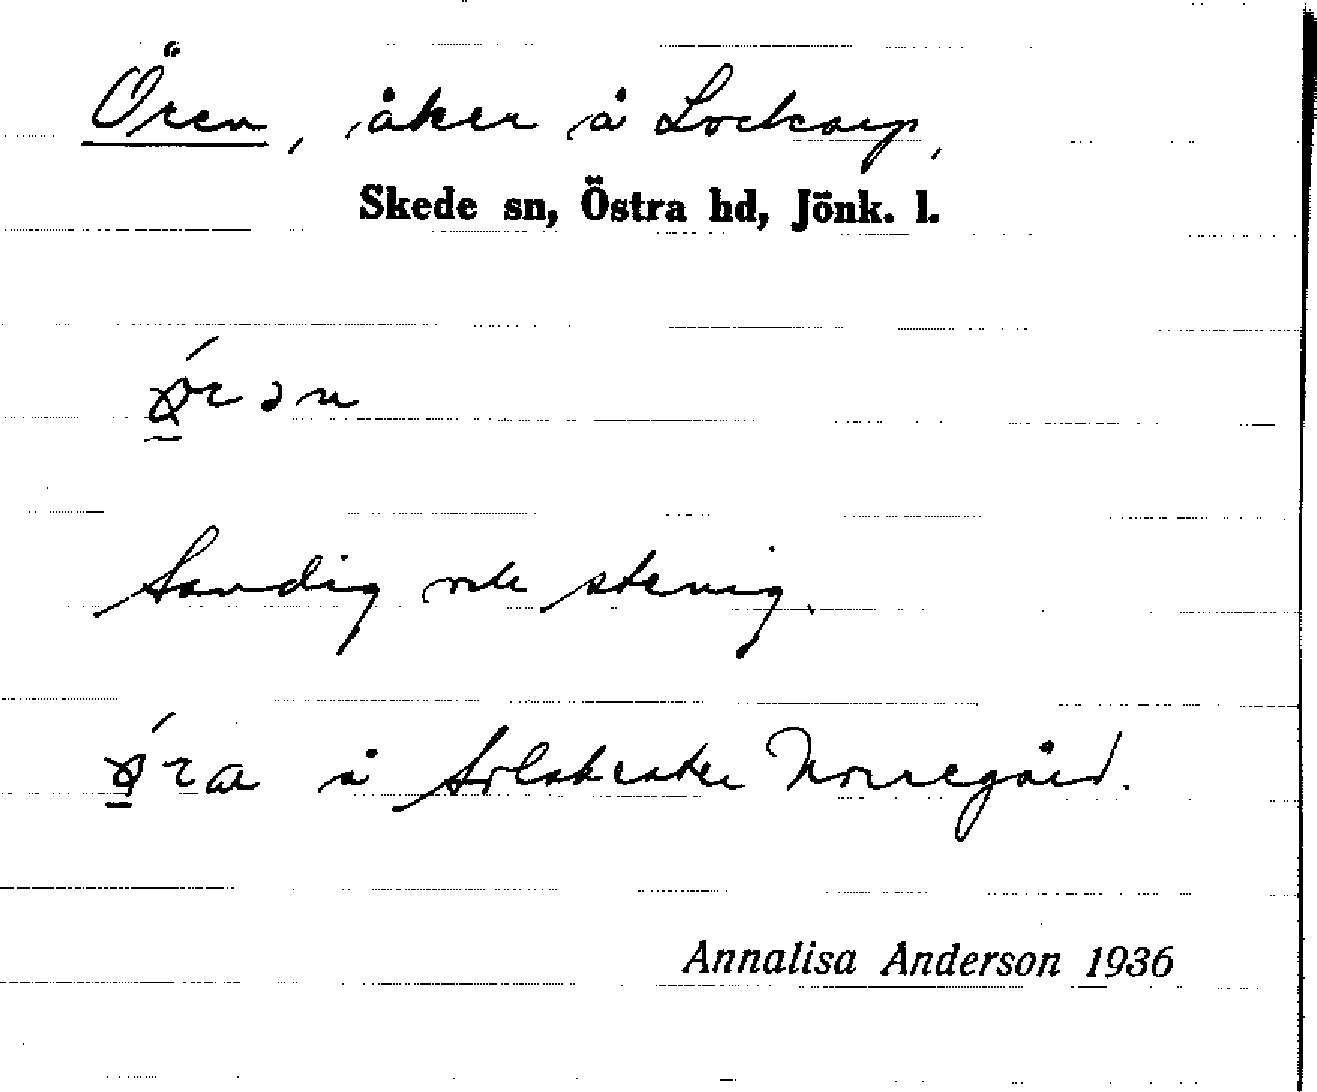 Ören, åker å Lockarp,
Skede sn, Östra hd, Jönk. l.
ǿ̠rən
Sandig och stenig.
ǿ̠ra å Norregård.
Annalisa Anderson 1936